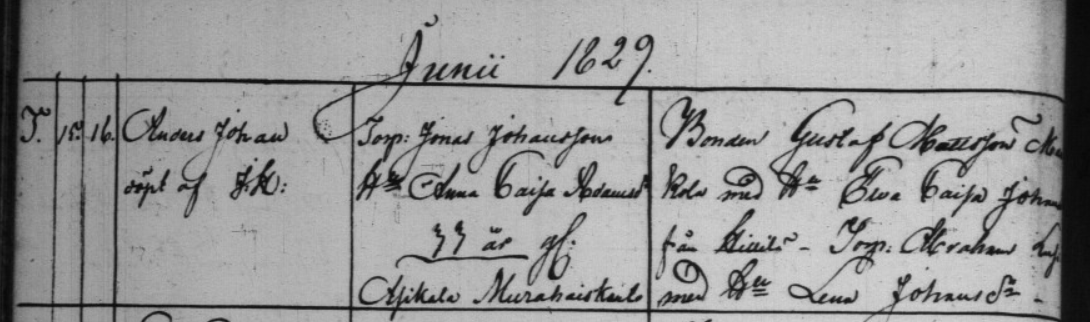 Junii 1829.
T. 15. 16. Anders Johan
döpt af J.K:
Torp: Jonas Johansson
Hu Anna Caisa Adamsdr
33 år gl.
Murahaiskails
Bonden Gustaf Mattsson
kola med Hu Ewa Caisa Johans
från Torp: Abraham
med Hu Lena Johansdr